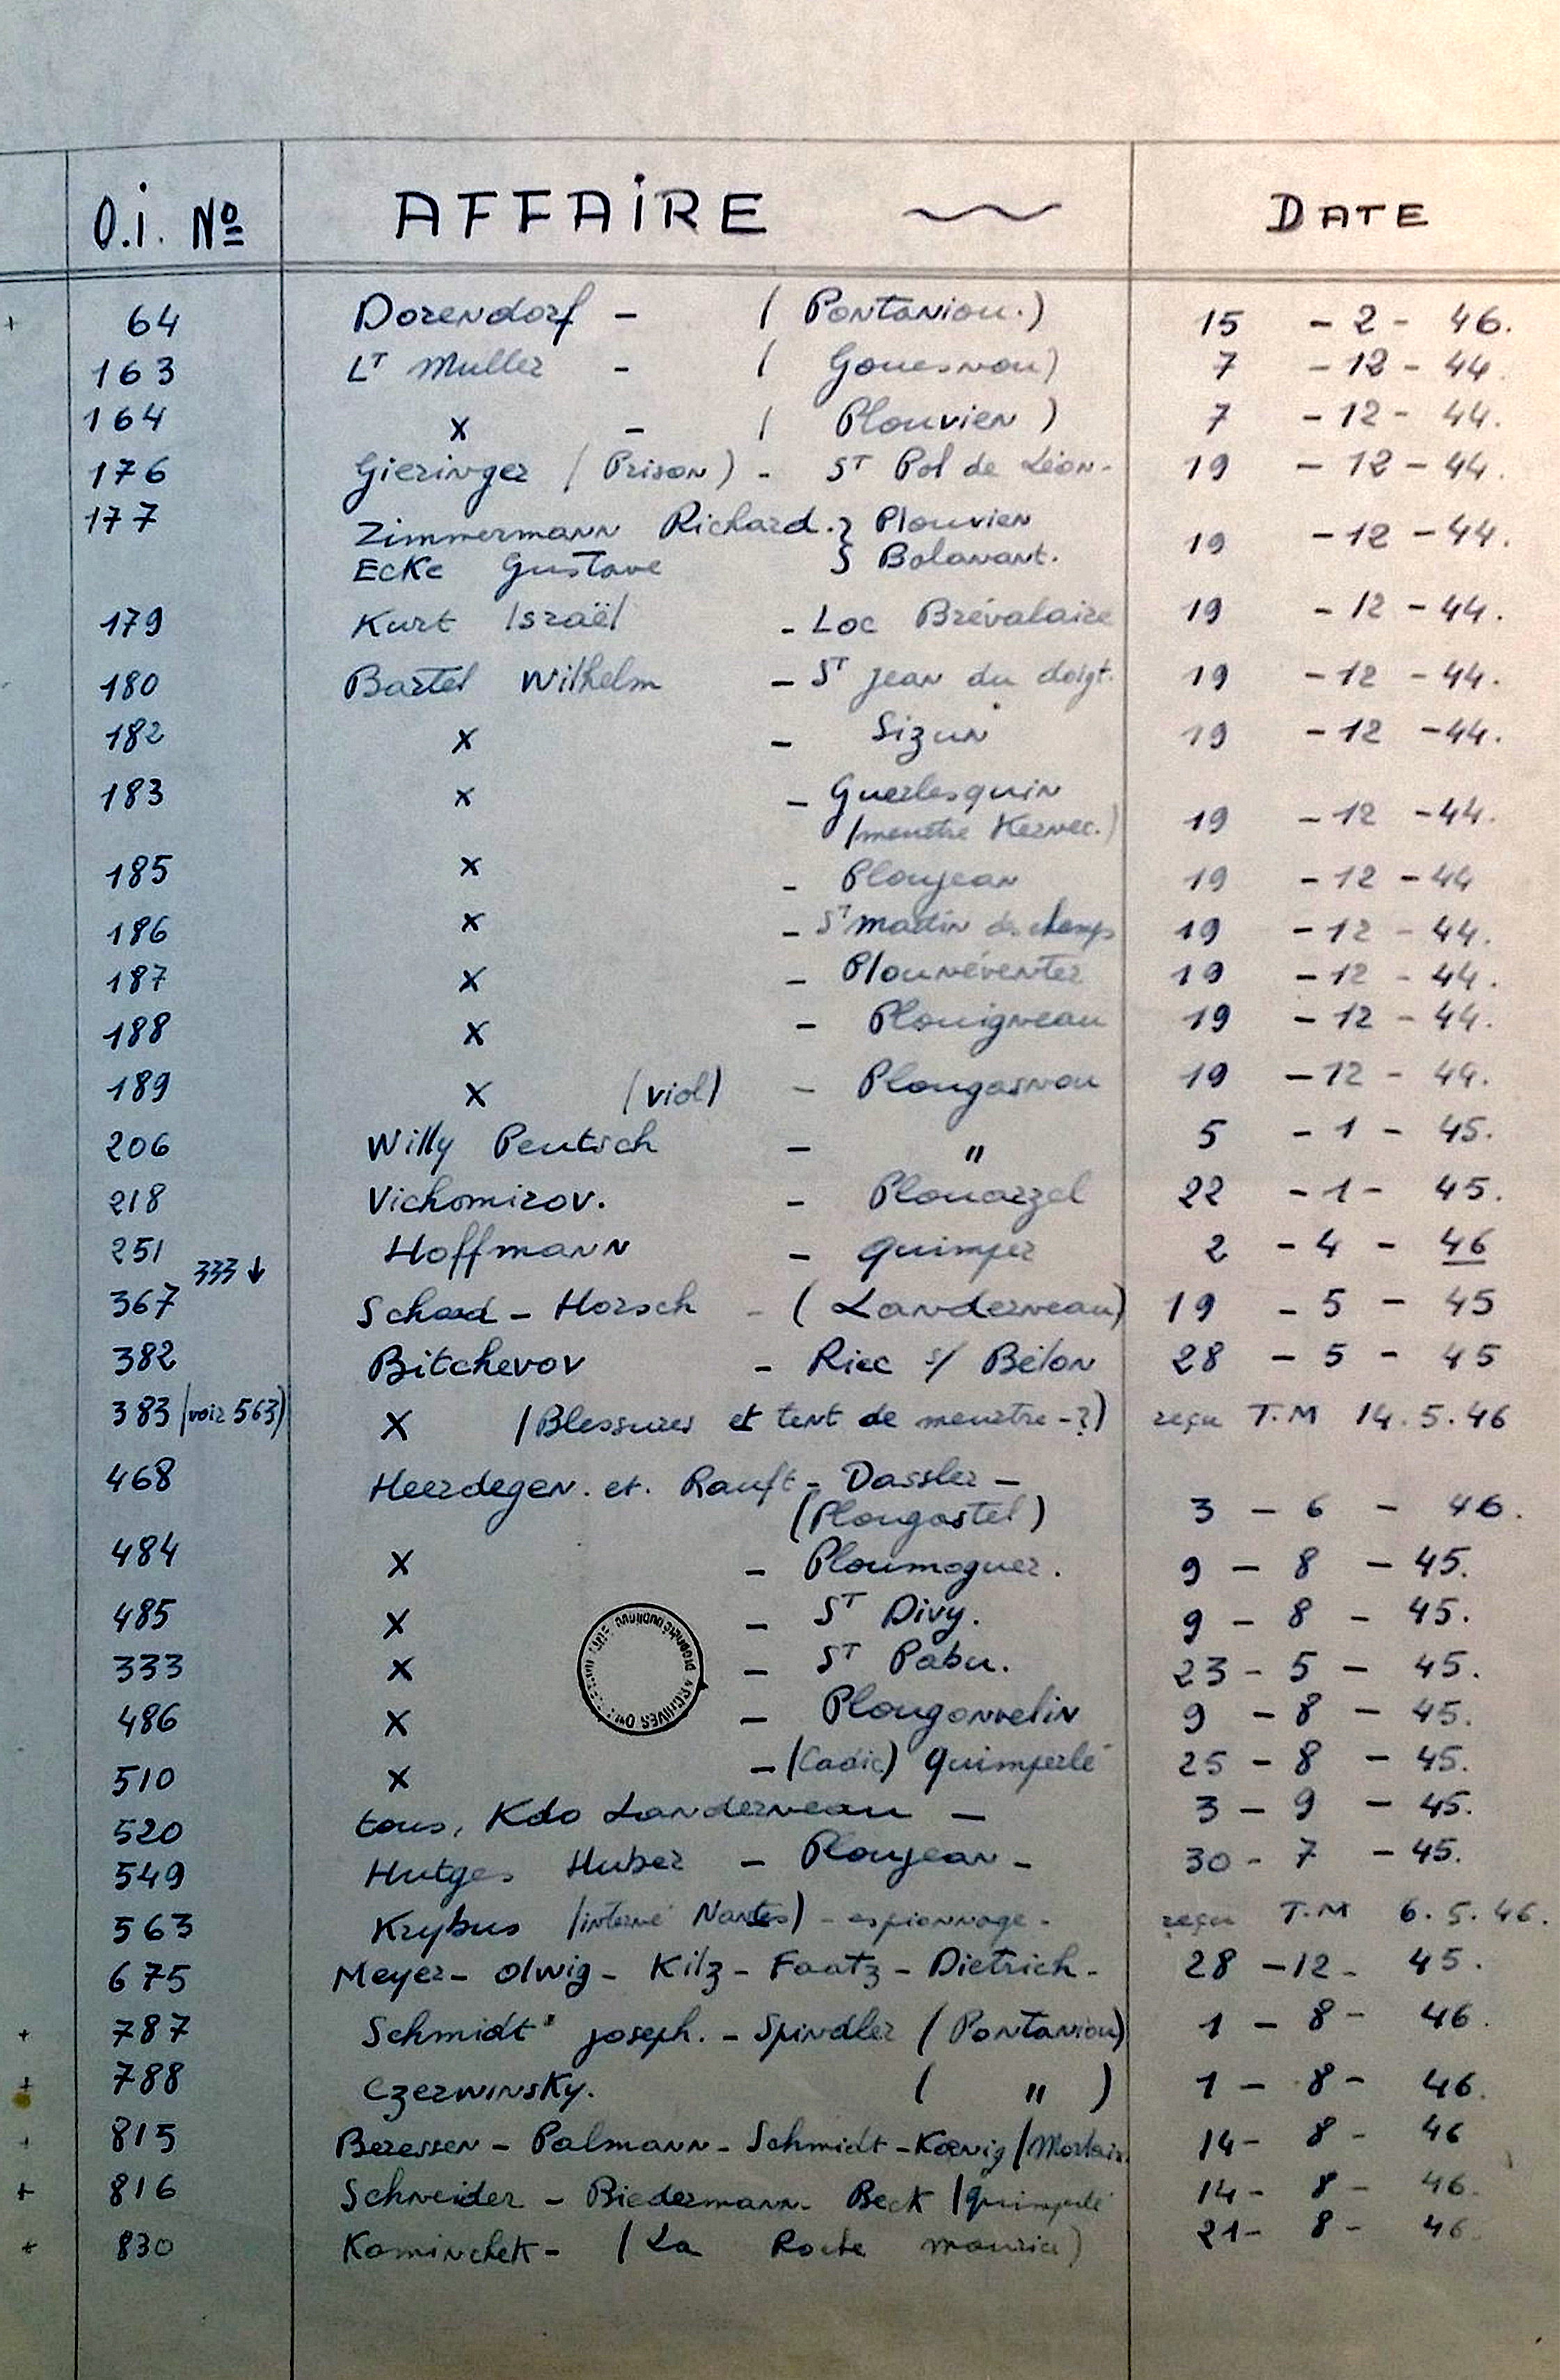 O.i. Nº AFFAiRE DATE
+ 64 Dorendorf - ( Pontaniou.) 15 - 2 - 46.
163 Lᵀ Muller - ( Gouesnou) 7 - 12 - 44.
164 x - ( Plouvien ) 7 - 12 - 44.
176 Gieringer ( Prison ) - Sᵀ Pol de Léon- 19 - 12 - 44.
177 Zimmermann Richard. } Plouvien
Ecke Gustave } Bolanant. 19 - 12 - 44.
179 Kurt Israël - Loc Brévalaire 19 - 12 - 44.
180 Bartel Wilhelm - Sᵀ jean du doigt. 19 - 12 - 44.
182 x - Sizun 19 - 12 - 44.
183 x - Guerlesquin
(meurtre Kernec.) 19 - 12 - 44.
185 x - Ploujean 19 - 12 - 44
186 x - Sᵀ martin des champs 19 - 12 - 44.
187 x - Plounéventer 19 - 12 - 44.
188 x - Plouigneau 19 - 12 - 44.
189 x (viol) - Plougasnou 19 - 12 - 44.
206 Willy Peutsch - " 5 - 1 - 45.
218 Vichomirov. - Plouarzel 22 - 1 - 45.
251 Hoffmann - quimper 2 - 4 - 46
333 ↓
367 Schaad - Horsch - ( Landerneau) 19 - 5 - 45
382 Bitchevov - Riec s/ Bélon 28 - 5 - 45
383 (voir 563) x (Blessures et tent de meurtre -?) reçu T.M 14.5.46
468 Heerdegen. et. Rauft - Dassler -
(Plougastel) 3 - 6 - 46.
484 x - Ploumoguer. 9 - 8 - 45.
485 x - Sᵀ Divy. 9 - 8 - 45.
333 x - Sᵀ Pabu. 23 - 5 - 45.
486 x - Plougonvelin 9 - 8 - 45.
510 x - (Cadic) quimperlé 25 - 8 - 45.
520 tous, Kdo Landerneau - 3 - 9 - 45.
549 Hutges Huber - Ploujean - 30 - 7 - 45.
563 Krybus (interné Nantes) - espionnage - reçu T.M 6.5.46.
675 Meyer - Olwig - Kilz - Faatz - Dietrich - 28 - 12 - 45.
+ 787 Schmidt joseph. - Spindler ( Pontaniou) 1 - 8 - 46.
+ 788 Czerwinsky. ( " ) 1 - 8 - 46.
+ 815 Beressen - Palmann - Schmidt - Kœnig (Morlaix 14 - 8 - 46
+ 816 Schneider - Biedermann - Beck (quimperlé 14 - 8 - 46.
+ 830 Kaminchek - ( La Roche maurice) 21 - 8 - 46.
ARCHIVES